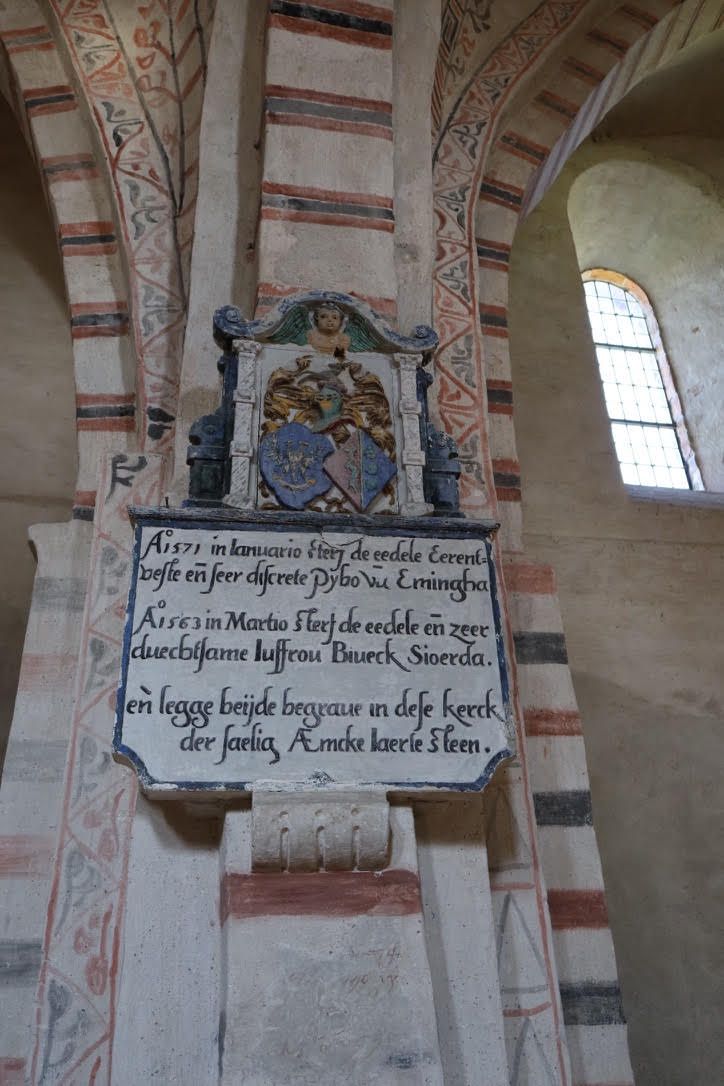 Aº 1571 in Ianuario sterf de eedele Eerent-
veste en̄ seer discrete Pybo vū Emingha
Aº 1563 in Martio sterf de eedele en̄ zeer
duechtsame Iuffrou Biueck Sioerda.
en̄ legge beijde begraue in dese kerck
der saelig Æmcke Iaerle steen.